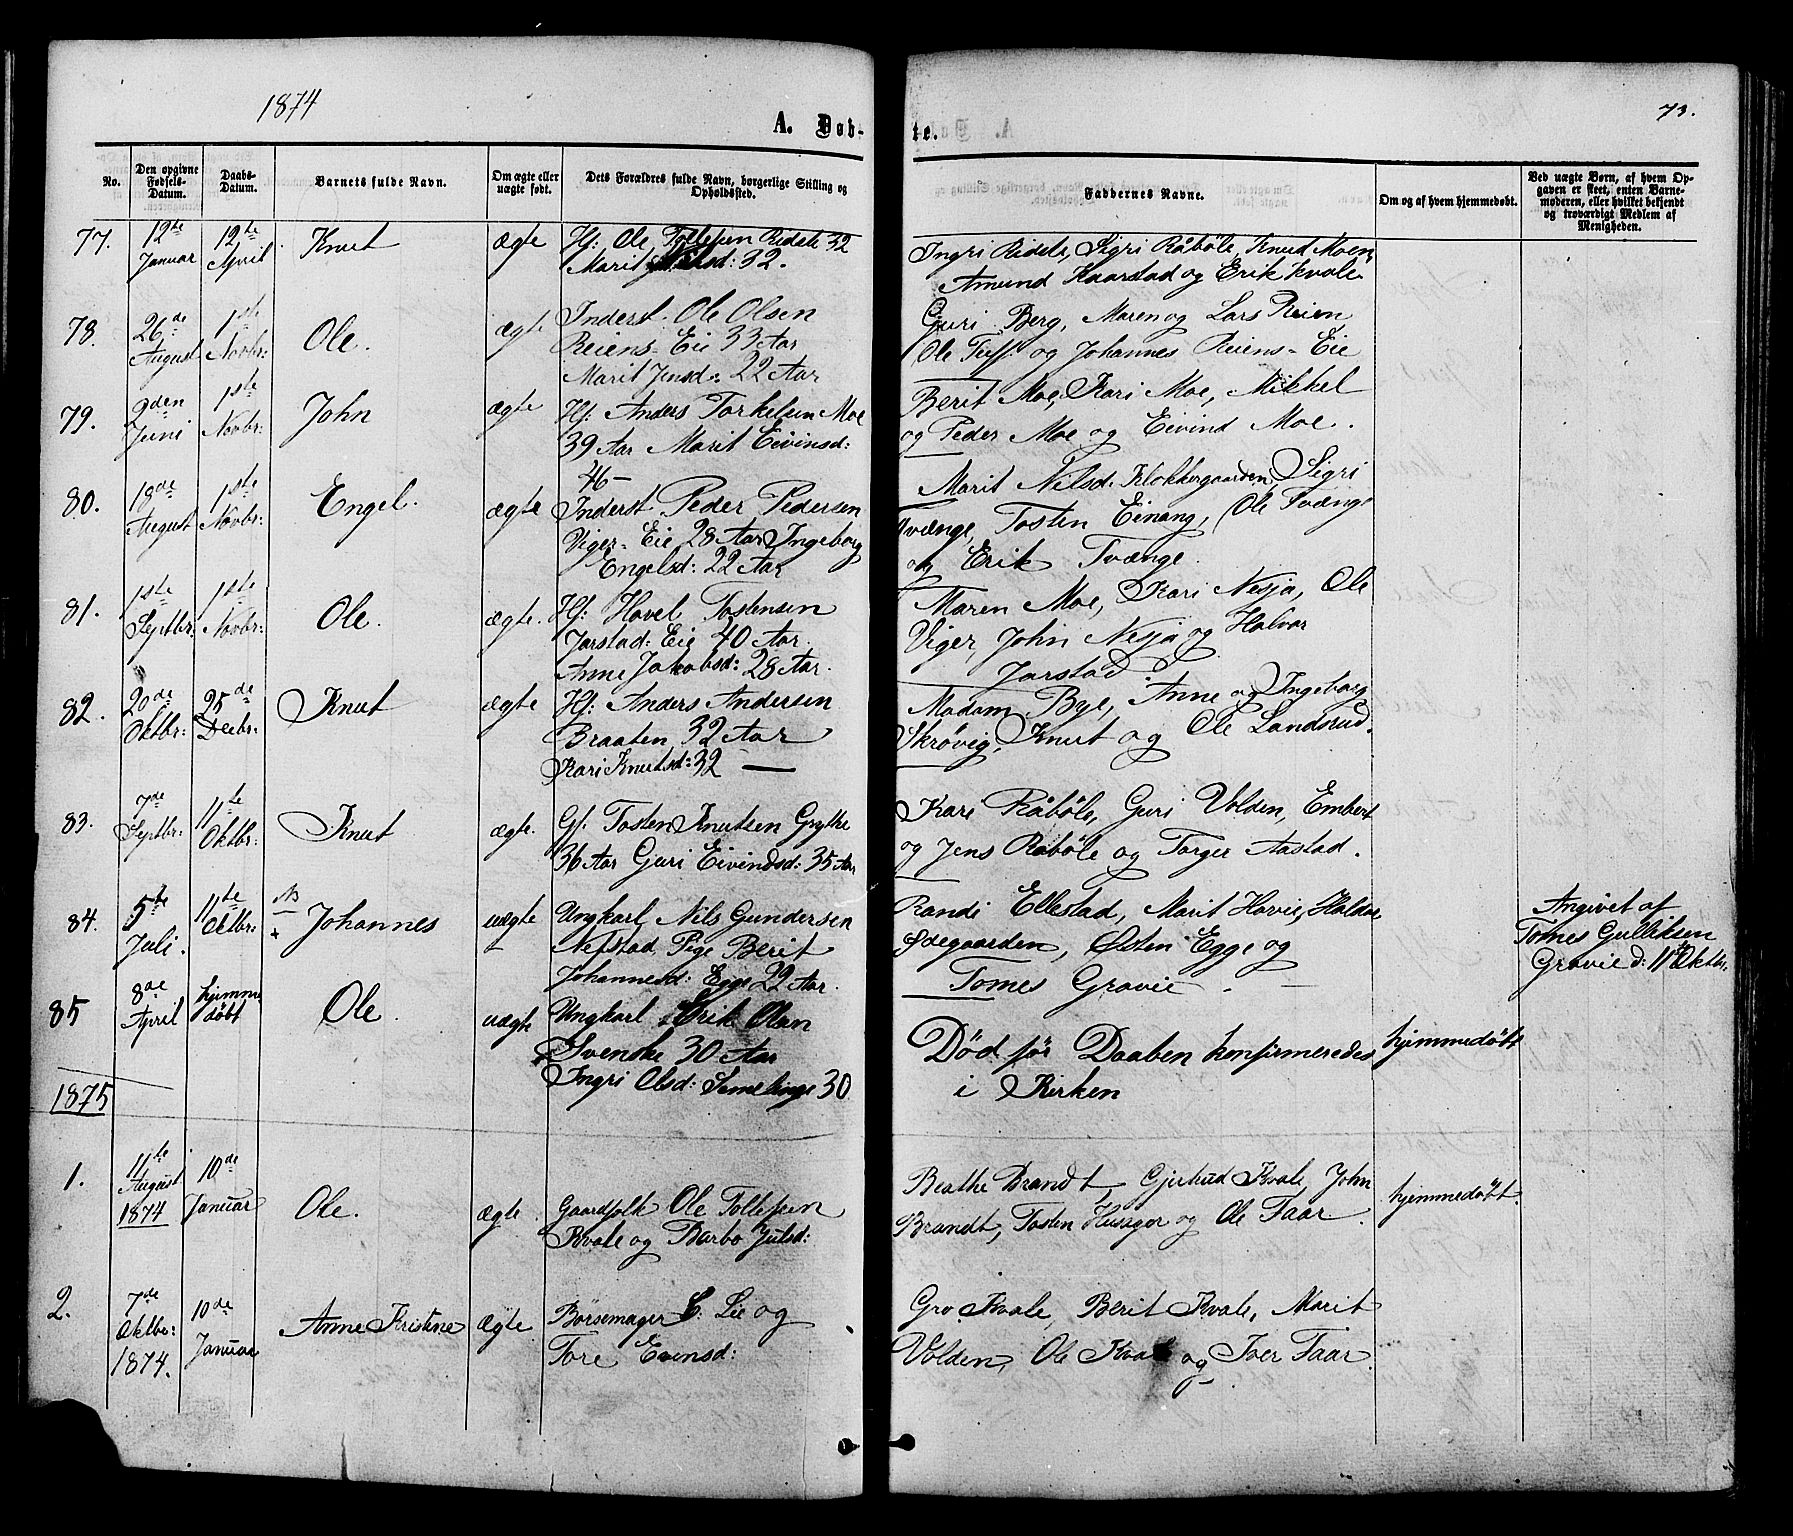 1874
A. Døb-
No.
Den opgivne Fødsels-Datum.
Daabs-Datum.
Barnets fulde Navn.
Om ægte eller uægte født.
Dets Forældres fulde Navn, borgerlige Stilling og Opholdssted.
77. 12te Januar 12te April Knut ægte Hf: Ole Tollefsen Ridste 32
Marit 32.
78. 26de August 1ste Novbr: Ole. ægte Inderst Ole Olsen
Reiens-Eie 33 Aar
Marit Jensd: 22 Aar
79. 2den Juni 1ste Novbr: John ægte Hf: Anders Torkelsen Moe
39 Aar Marit Eivinsd:
46 –
80. 18de August 1ste Novbr: Engel. ægte Inderst Peder Pedersen
Viger-Eie 28 Aar Ingeborg
Engelsd: 22 Aar
81. 1ste Septbr: 1ste Novbr: Ole. ægte. Hf: Hovel Tostensen
Jarstad: Eie 40 Aar
Anne Jakobsd: 28 Aar.
82. 20de Oktbr: 25de Decbr: Knut ægte Hf: Anders Andersen
Braaten 32 Aar
Kari Knutsd: 32 —
83. 7de Septbr: 11te Oktbr: Knut ægte. Gf: Tosten Knutsen Grythe
36 Aar Guri Eivindsd: 35 Aar
84. 5te Juli. 11te Oktbr: NB + Johannes uægte Ungkarl Nils Gundersen
Nefstad, Pige Berit
Johannesd: Egge 22 Aar.
85 8de April hjemme døbt Ole. uægte Ungkarl Erik Olsen
Svenske 30 Aar
Ingri Olsd: 30
1875
1. 11te August 1874 10de Januar Ole. ægte. Gaardfolk Ole Tollefsen
Kvale og Barbo Julsd:
2. 7de Oktbr: 1874. 10de Januar Anne Kristine ægte Børsemager Lie og
Tore Evensd:
te.
73.
Faddernes Navne.
Om og af hvem hjemmedøbt.
Ved uægte Børn, af hvem Opgaven er skeet, enten Barnemoderen, eller hvilket bekjendt og troværdigt Medlem af Menigheden.
Ingri Ridste, Sigri Råbøle, Knud Moen,
Amund Kaarstad og Erik Kvale
Guri Berg, Maren og Lars Reien
Ole Tuff og Johannes Reiens-Eie
Berit Moe, Kari Moe, Mikkel
og Peder Moe og Eivind Moe.
Marit Nilsd: Klokkergaarden, Sigri
Tvænge, Tosten Einang, Ole Tvænge
og Erik Tvænge.
Maren Moe, Kari Nesja, Ole
Viger, John Nesja og Halvor
Jarstad.
Madam Bye, Anne og Ingeborg
Skrøvig, Knut og Ole Landsrud.
Kari Råbøle, Guri Volden, Embert
og Jens Råbøle og Torger Aastad.
Randi Ellestad, Marit Hovie, Haldor
Ødegaarden, Østen Egge og
Tomes Gravie.
Angivet af
Tomes Gulliksen
Gravie d: 11te Oktbr.
Død før Daaben konfirmeredes
i Kirken
hjemmedøbt
Beathe Brandt, Gjertrud Kvale, John
Brandt, Tosten Husager og Ole Faar.
hjemmedøbt.
Gro Kvale, Berit Kvale, Marit
Volden, Ole Kvale og Iver Faar.